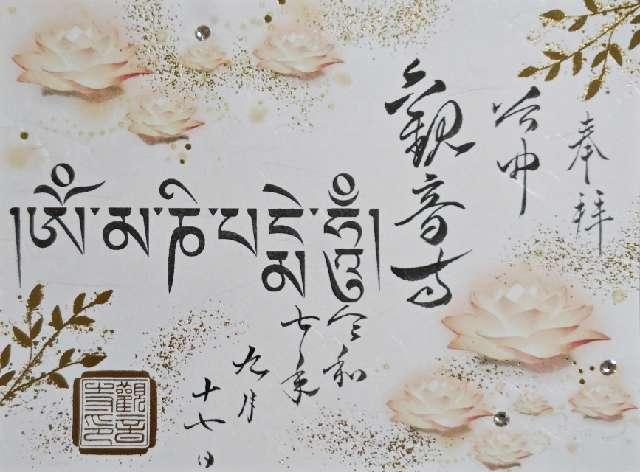 奉拝
谷中
觀音寺
།ཨོཾ་མ་ཎི་པ་དྨེ་ཧཱུྃ།
令和
七年
九月
十七日
觀音
寺印